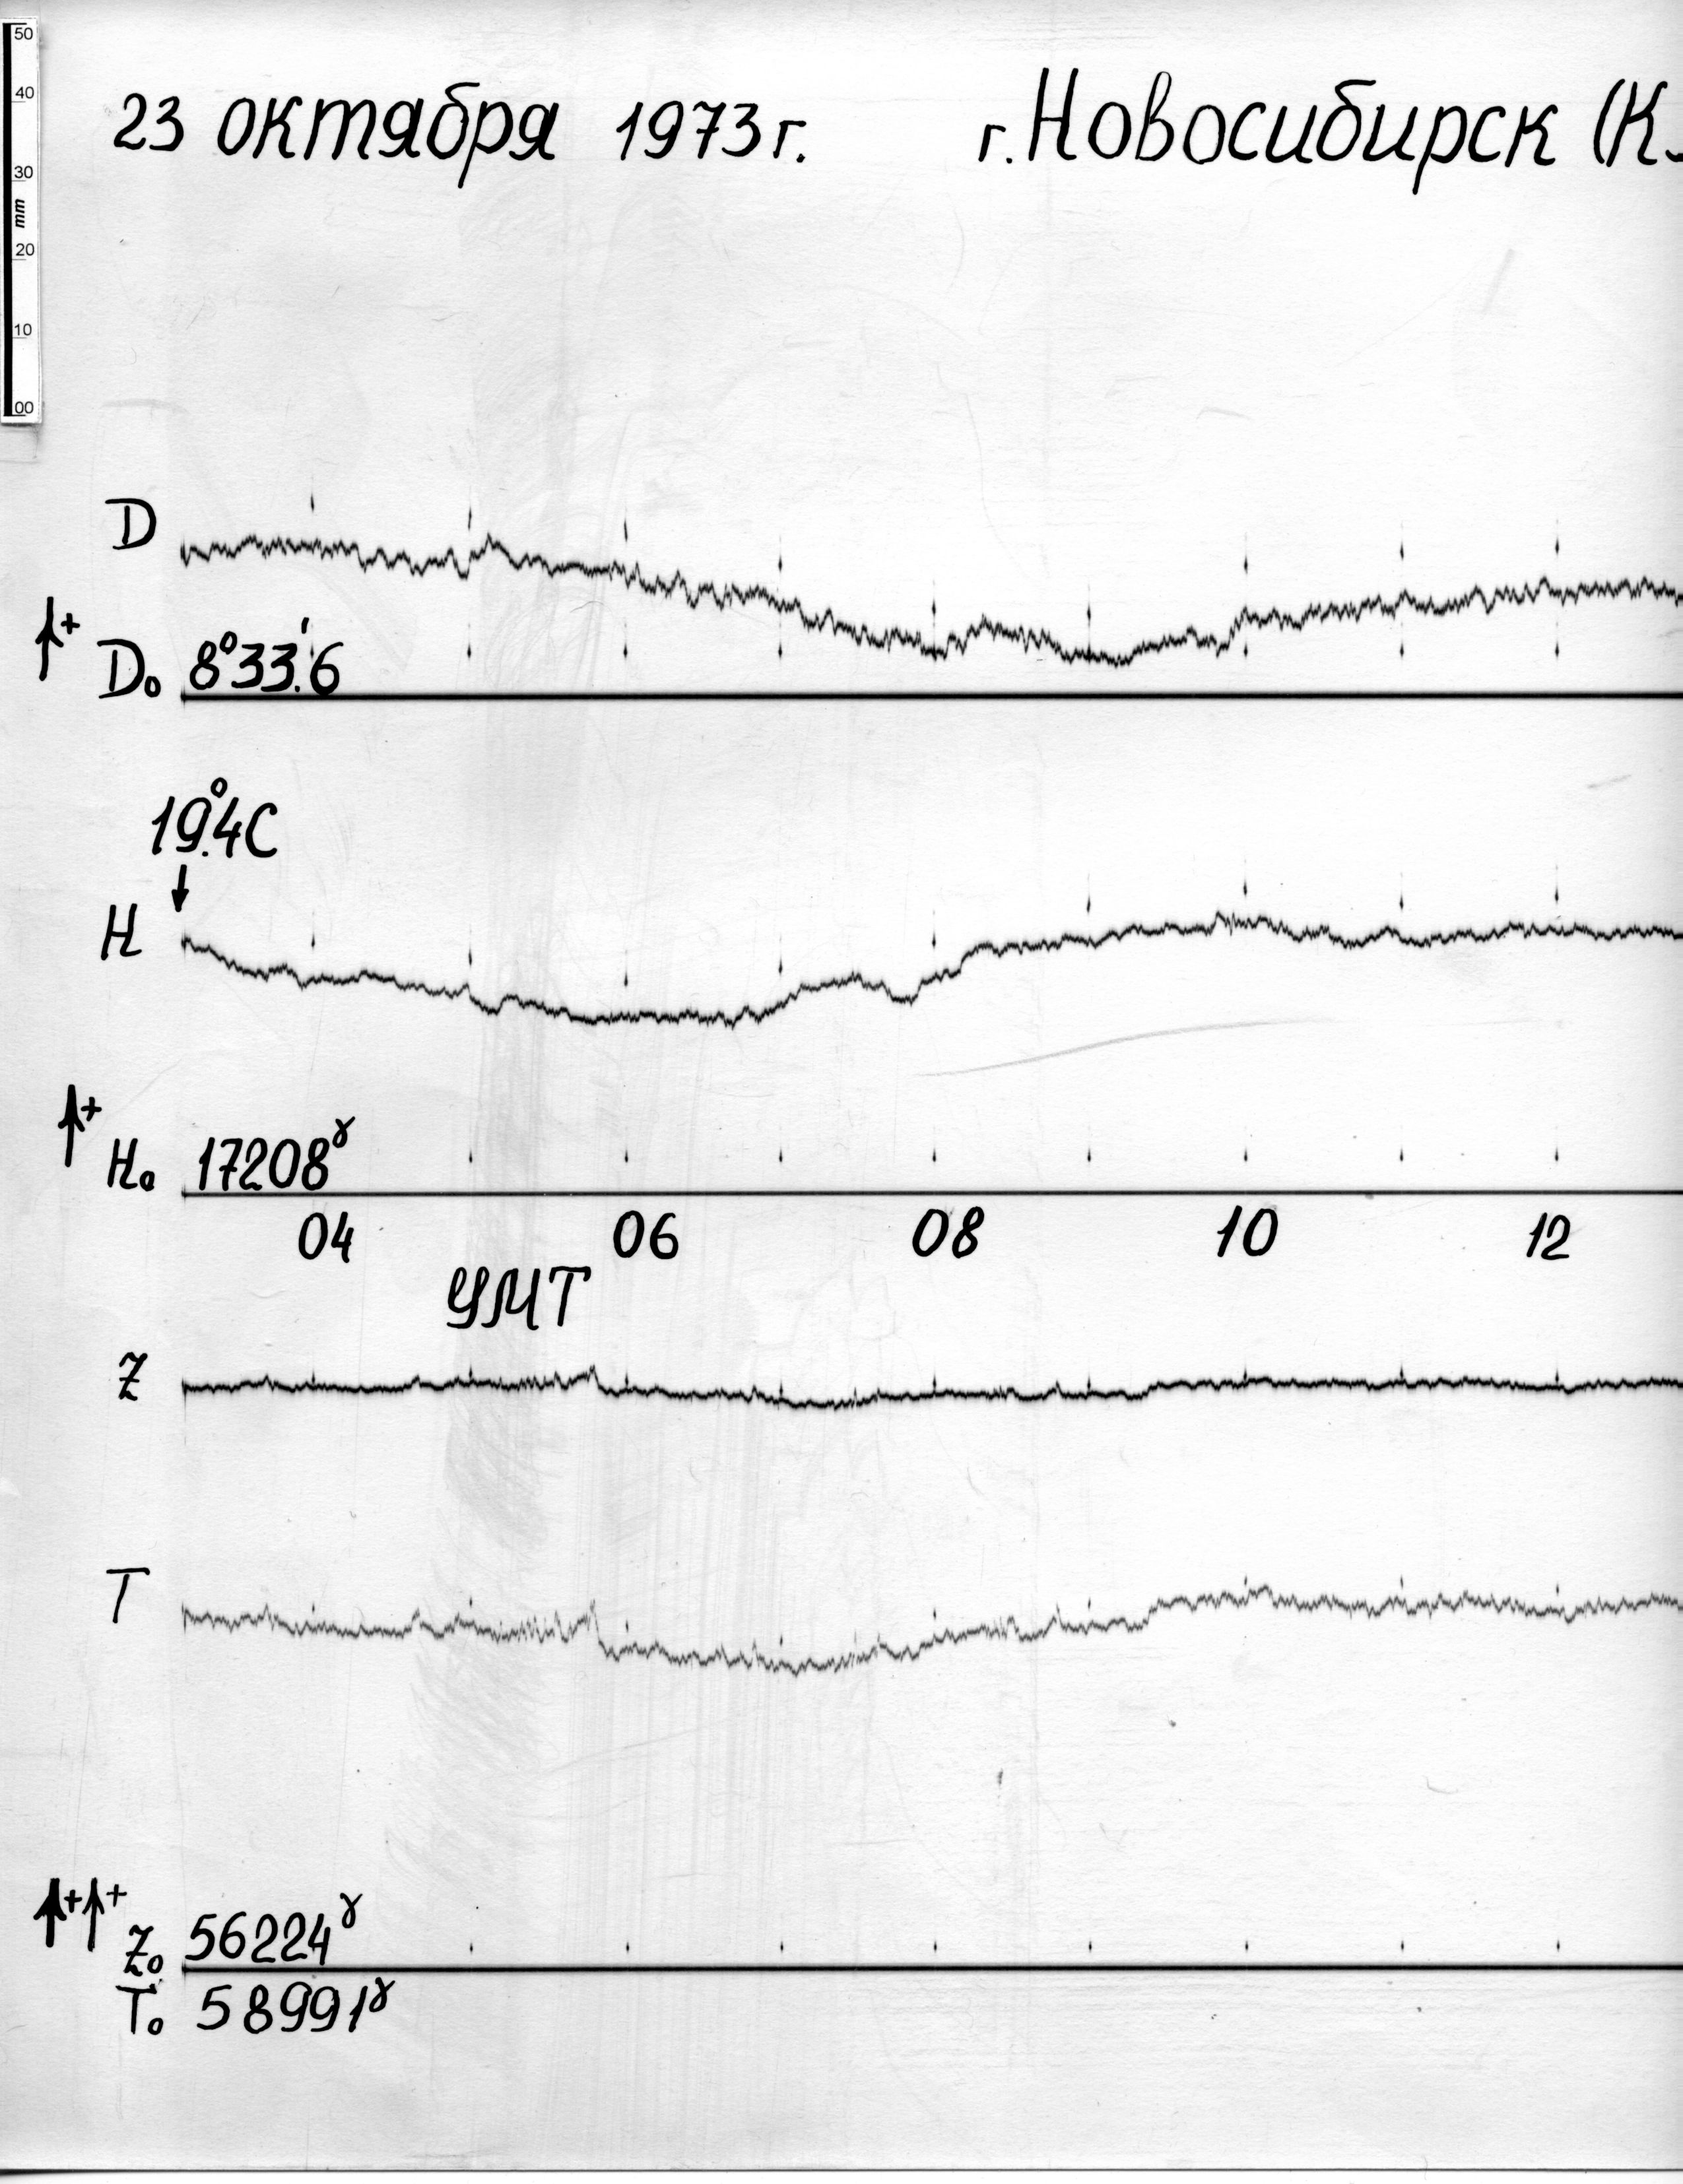 50
40
30
mm
20
10
00
23 октября 1973г. г. Новосибирск (К.
D
+
D₀ 8°33.'6
19.°4C
H
+
H₀ 17208ᵞ
04 06 08 10 12
УМТ
Z
T
+ +
Z₀ 56224ᵞ
T₀ 58991ᵞ